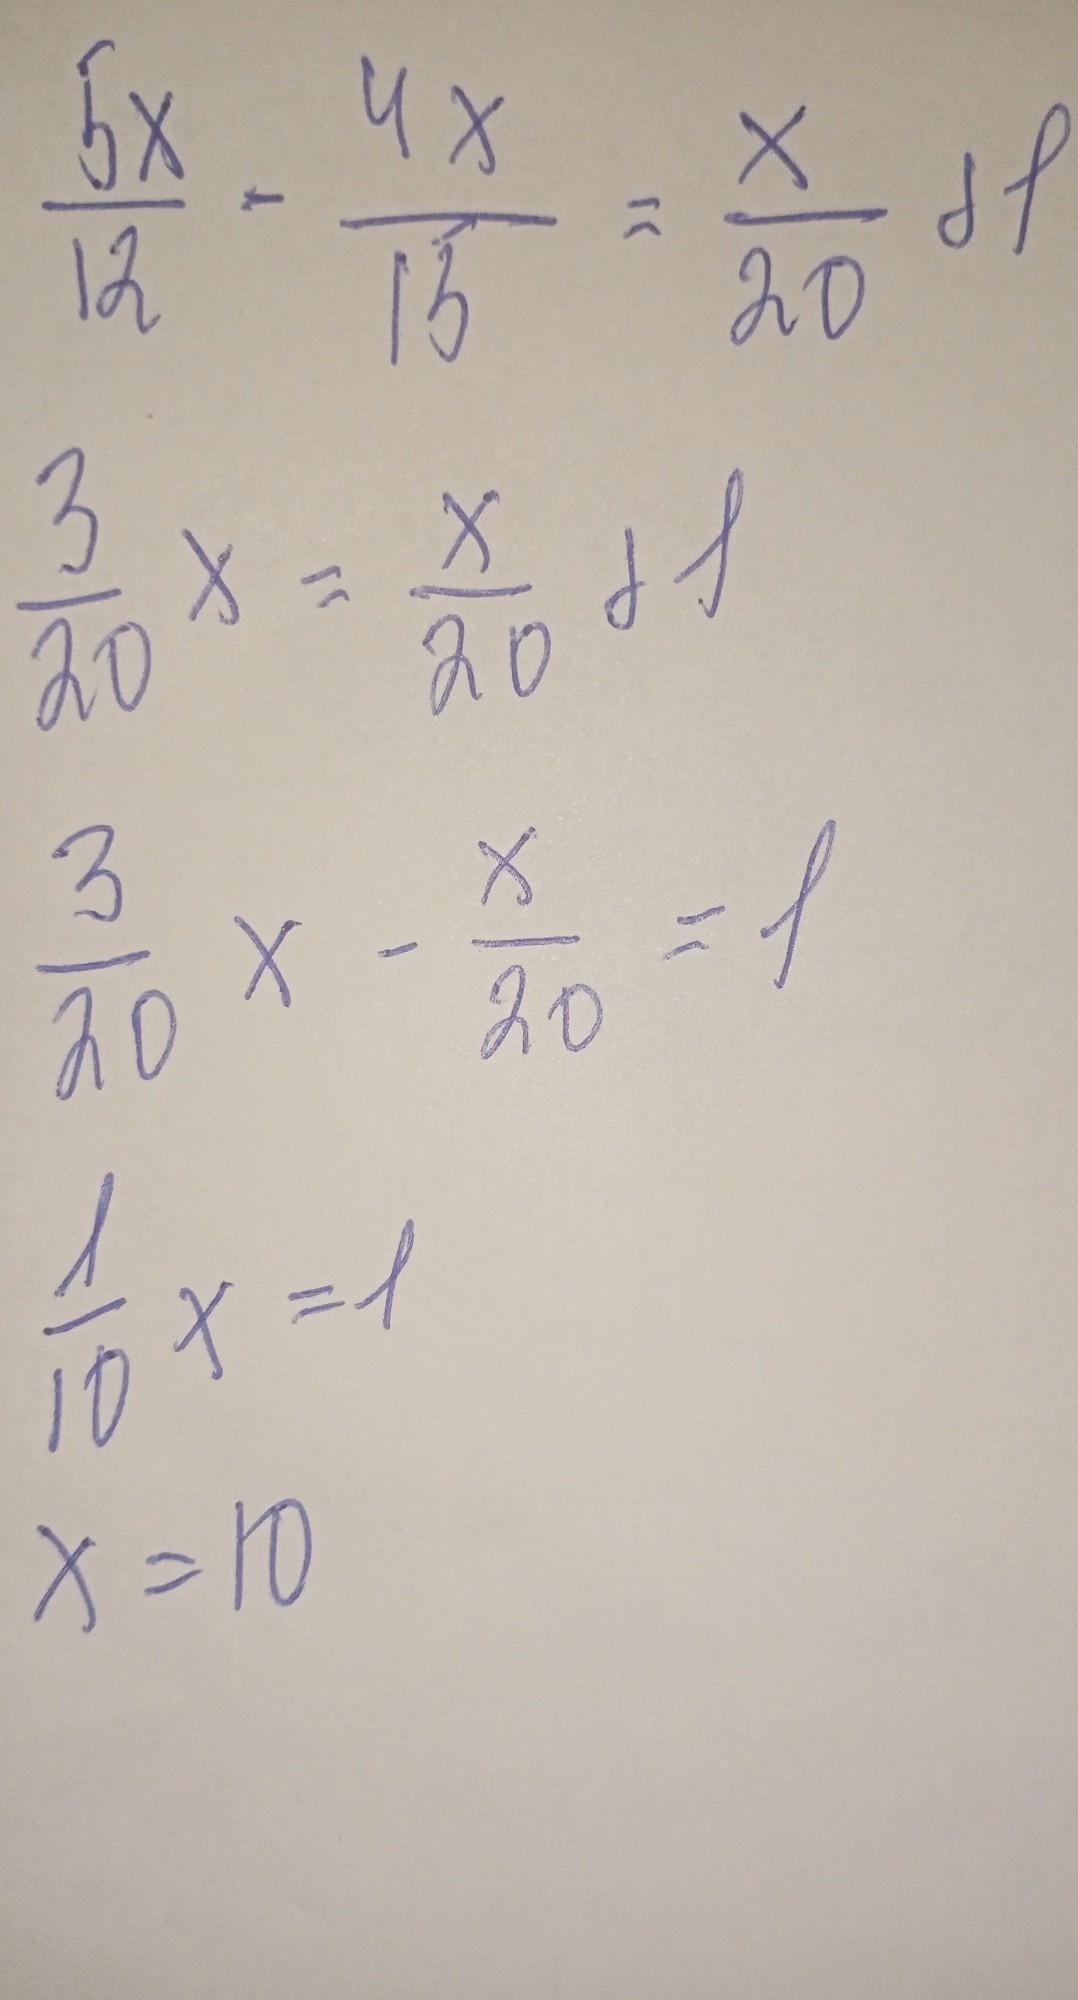 5x/12 - 4x/15 = x/20 + 1
3/20 x = x/20 + 1
3/20 x - x/20 = 1
1/10 x = 1
x = 10